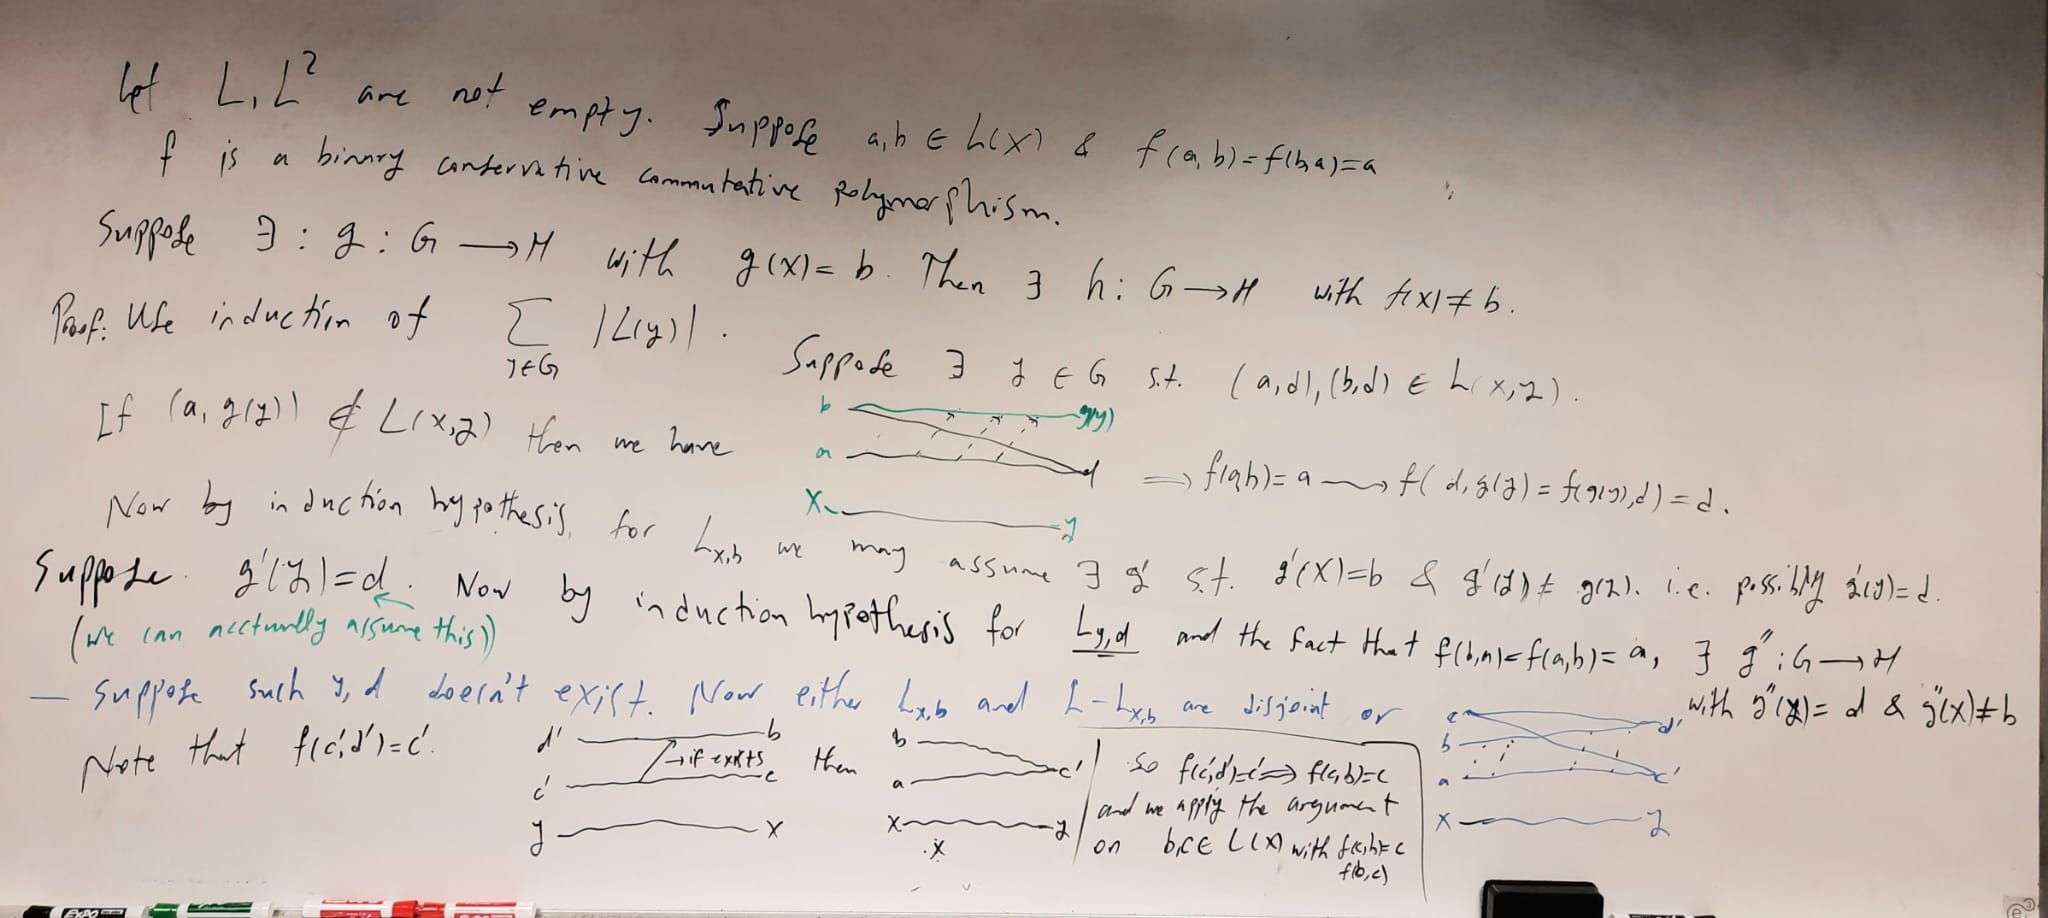 Let L, L² are not empty. Suppose a,b ∈ L(x) & f(a,b)=f(b,a)=a
f is a binary conservative commutative polymorphism.
Suppose ∃ : g : G → H with g(x)= b. Then ∃ h: G → H with f(x) ≠ b.
Proof: Use induction of ∑ |L(y)|.
y∈G
Suppose ∃ y ∈ G s.t. (a,d),(b,d) ∈ L(x,y).
If (a, g(y)) ∉ L(x,y) then we have
b g(y)
a d
x y
⇒ f(a,b)= a ⟿ f(d,g(y)) = f(g(y),d) = d.
Now by induction hypothesis, for L_{x,b} we may assume ∃ g' s.t. g'(x)=b & g'(y) ≠ g(y). i.e. possibly g'(y)=d.
Suppose g'(y)=d. Now by induction hypothesis for L_{y,d} and the fact that f(b,a)=f(a,b)= a, ∃ g'' : G → H
with g''(y)= d & g''(x)≠b
(we can acctually assume this)
— Suppose such y, d doesn't exist. Now either L_{x,b} and L-L_{x,b} are disjoint or
Note that f(c',d')=c'.
d' b
→ if exists
c' c
y x
then
b
a c'
x y
x
So f(c',d')=c' ⇒ f(c,b)=c
and we apply the argument
on b,c ∈ L(x) with f(c,b)=c
f(b,c)
c
b d'
a c'
x y
EXPO